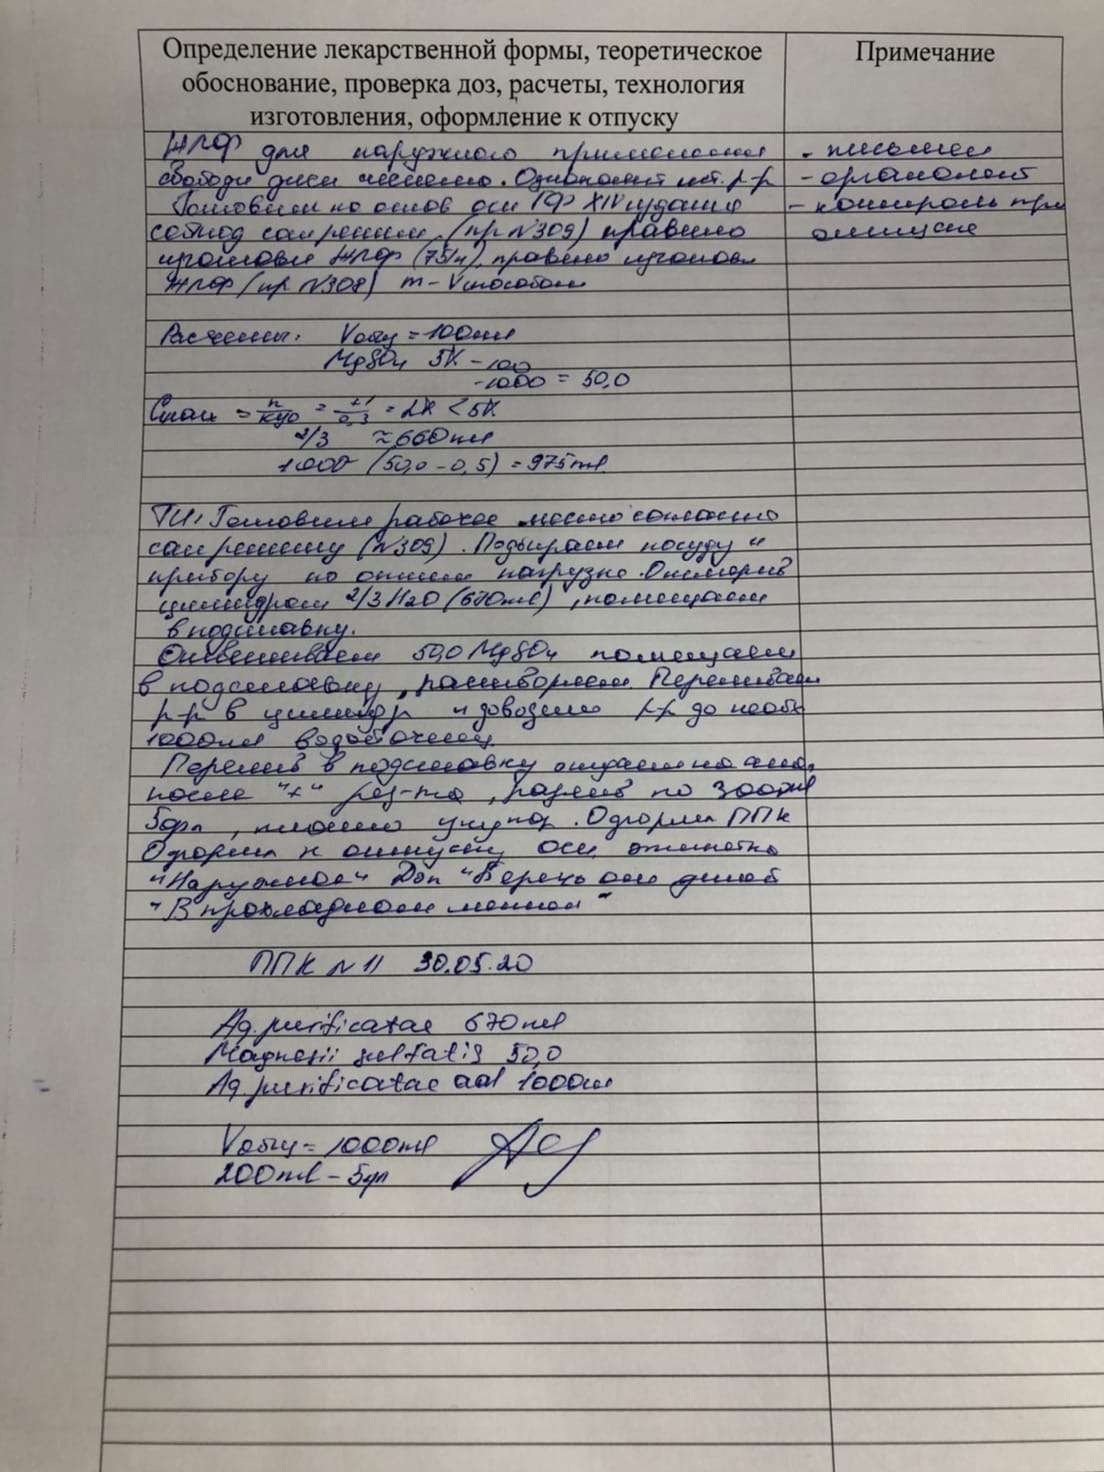 Определение лекарственной формы, теоретическое
обоснование, проверка доз, расчеты, технология
изготовления, оформление к отпуску
Примечание
ЖЛФ для наружного применения
- письмен
- органолепт
Готовим на основ ГФ XIV издания
- контроль при
(пр №309) правило
отпуске
ЖЛФ (751н), правило
ЖЛФ (пр №308) m-V способом
Расчеты: Vобщ = 100мл
MgSO4 5% - 100
-1000 = 50,0
Cmax = n/КУО = ±1/0,3 = 2% < 5%
2/3 ≈ 660мл
1000 (50,0 - 0,5) = 975ml
ТИ: Готовим рабочее место согласно
сан режиму (№309). Подбираем посуду и
прибору по оптим нагрузке. Отмерив
цилиндром 2/3 H2O (670мл), помещаем
в подставку.
Отвешиваем 50,0 MgSO4 помещаем
в подставку, растворяем. Переливаем
р-р в цилиндр и доводим р-р до необх
1000мл водой очищ
Перелив в подставку на анал.
после "+" рез-та, разлив по
5фл, плотно укупор. Оформл ППК
Оформл к отпуску осн этикетка
"Наружное" Доп "Беречь от детей
"В прохладном месте"
ППК №11 30.05.20
Aq. purificatae 670ml
Magnesii sulfatis 50,0
Aq. purificatae ad 1000ml
Vобщ = 1000ml
200ml - 5уп